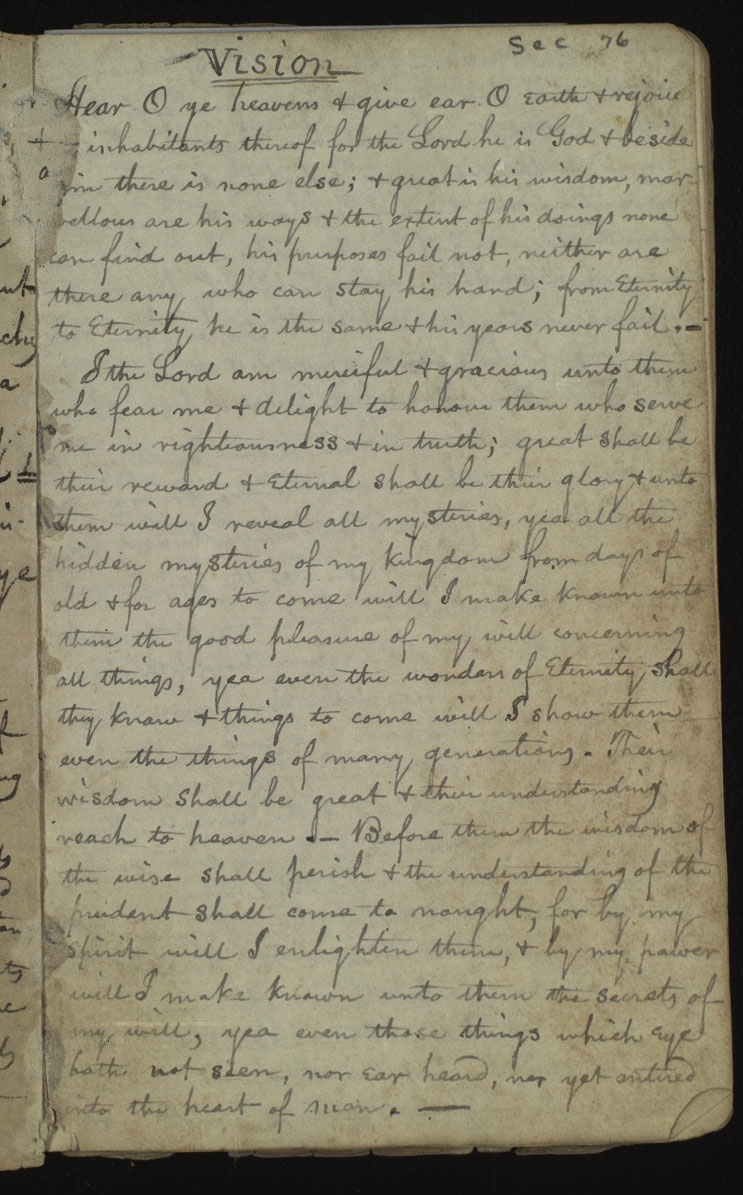 Sec 76
Vision
Hear O ye heavens & give ear O earth & rejoice
inhabitants thereof for the Lord he is God & beside
him there is none else; & great is his wisdom, mar
vellous are his ways & the extent of his doings none
can find out, his purposes fail not, neither are
there any who can stay his hand; from Eternity
to Eternity he is the same & his years never fail.—
I the Lord am merciful & gracious unto them
who fear me & delight to honour them who serve
me in righteousness & in truth; great shall be
their reward & Eternal shall be their glory & unto
them will I reveal all mysteries, yea all the
hidden mysteries of my kingdom from days of
old & for ages to come will I make known unto
them the good pleasure of my will concerning
all things, yea even the wonders of Eternity shall
they know & things to come will I show them
even the things of many generations. Their
wisdom shall be great & their understanding
reach to heaven.— Before them the wisdom of
the wise shall perish & the understanding of the
prudent shall come to nought, for by my
spirit will I enlighten them, & by my power
will I make known unto them the secrets of
my will, yea even those things which Eye
hath not seen, nor ear heard, nor yet entered
into the heart of man. —